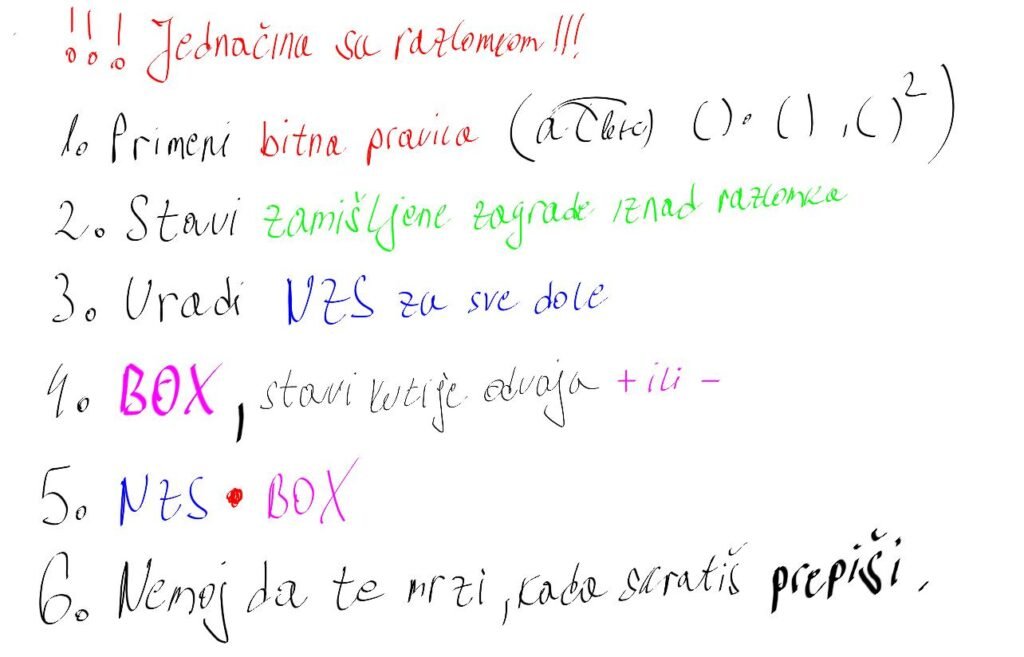 !!! Jednačina sa razlomkom!!!
1. Primeni bitna pravila (a·(b+c) ()·(), ()²)
2. Stavi zamišljene zagrade iznad razlomka
3. Uradi NZS za sve dole
4. BOX, stavi kutije odvaja + ili -
5. NZS • BOX
6. Nemoj da te mrzi, kada skratiš prepiši.